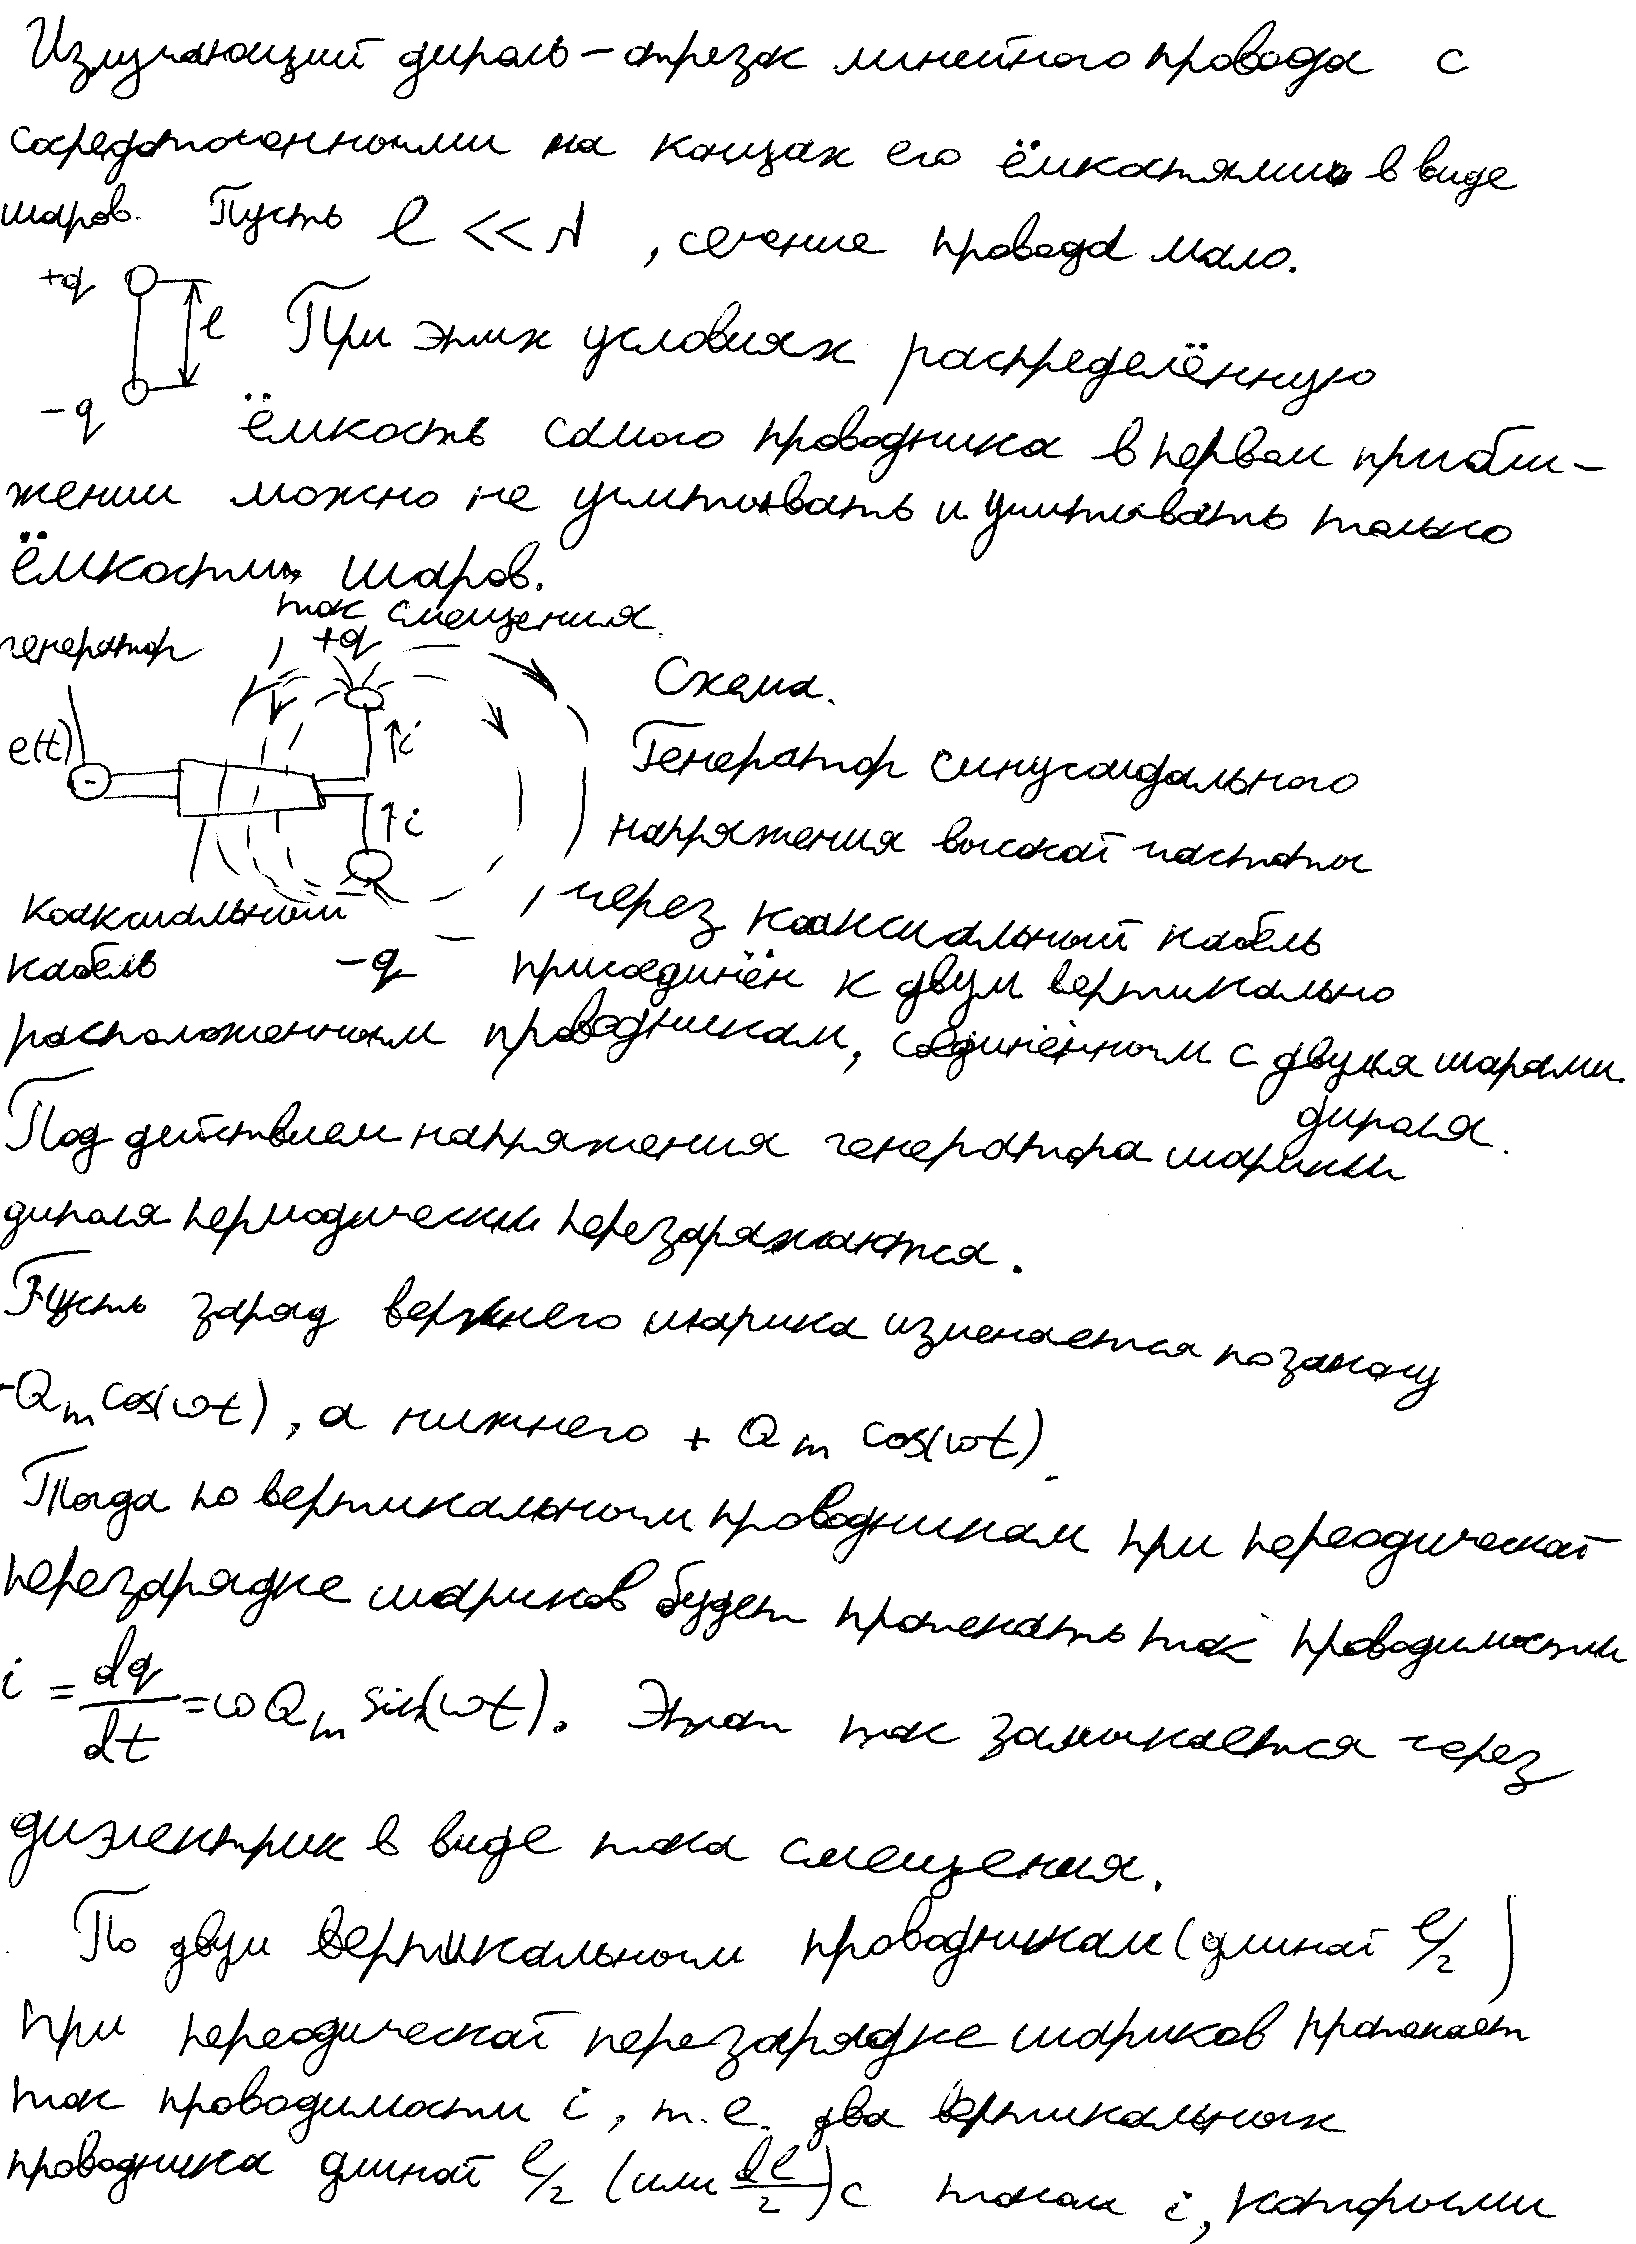 Излучающий диполь – отрезок линейного провода с
сосредоточенными на концах его ёмкостями в виде
шаров. Пусть l << λ, сечение провода мало.
+q
l
При этих условиях распределённую
-q
ёмкость самого проводника в первом прибли-
жении можно не учитывать и учитывать только
ёмкости шаров.
ток смещения
генератор
+q
Схема.
e(t)
i
Генератор синусоидального
i
напряжения высокой частоты
коаксиальный
, через коаксиальный кабель
кабель
-q
присоединён к двум вертикально
расположенным проводникам, соединённым с двумя шарами
диполя.
Под действием напряжения генератора шарики
диполя периодически перезаряжаются.
Пусть заряд верхнего шарика изменяется по закону
-Qm cos(ωt), а нижнего + Qm cos(ωt).
Тогда по вертикальным проводникам при переодической
перезарядке шариков будет протекать ток проводимости
i = dq/dt = ωQm sin(ωt). Этот ток замыкается через
диэлектрик в виде тока смещения.
По двум вертикальным проводникам (длиной l/2)
при переодической перезарядке шариков протекает
ток проводимости i, т.е. два вертикальных
проводника длиной l/2 (или dl/2) с током i, которыми